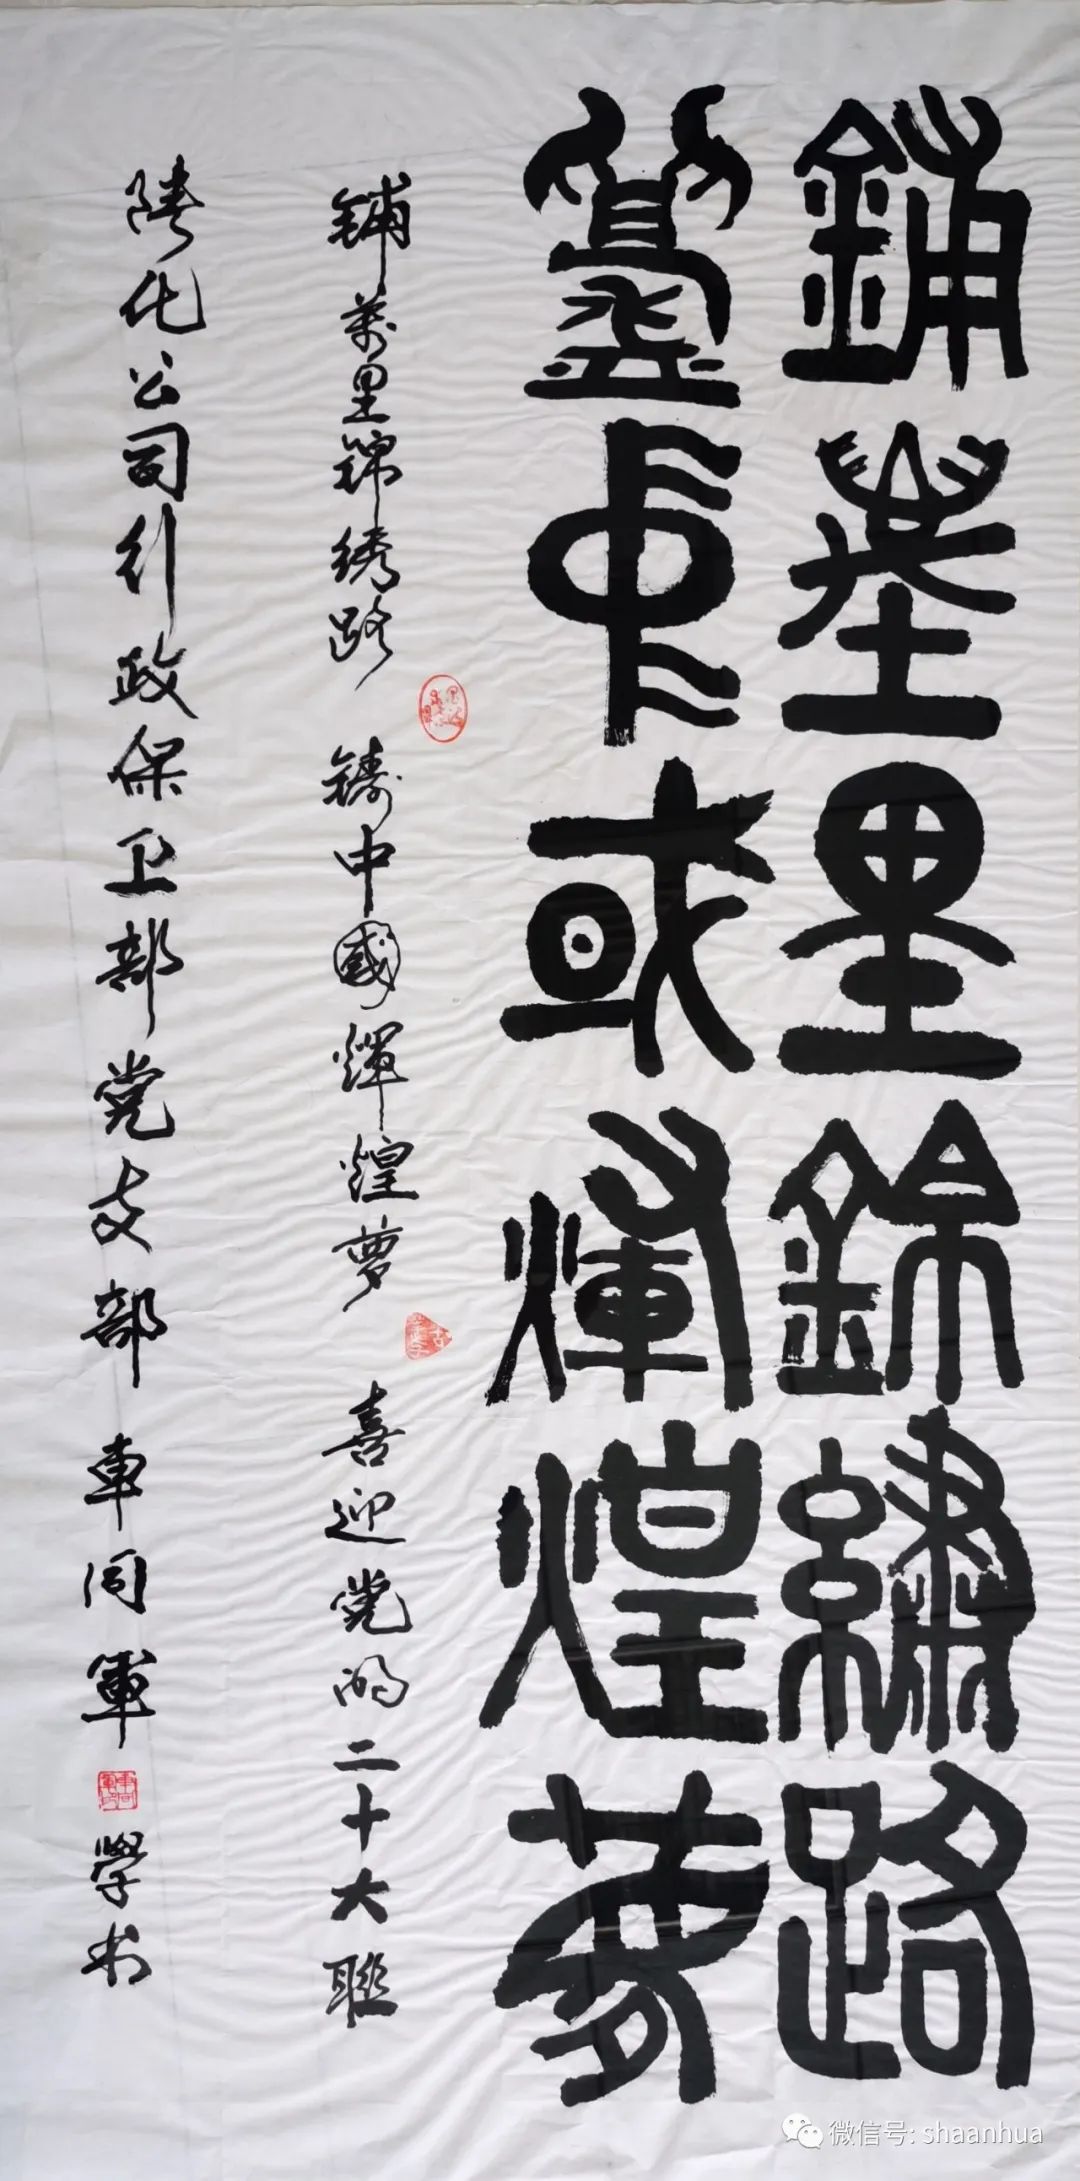 鋪萬里錦繡路
鑄中國輝煌夢
鋪萬里錦綉路 鑄中國輝煌夢 喜迎党的二十大聯
陕化公司行政保卫部党支部 車同軍 學书
微信号: shaanhua